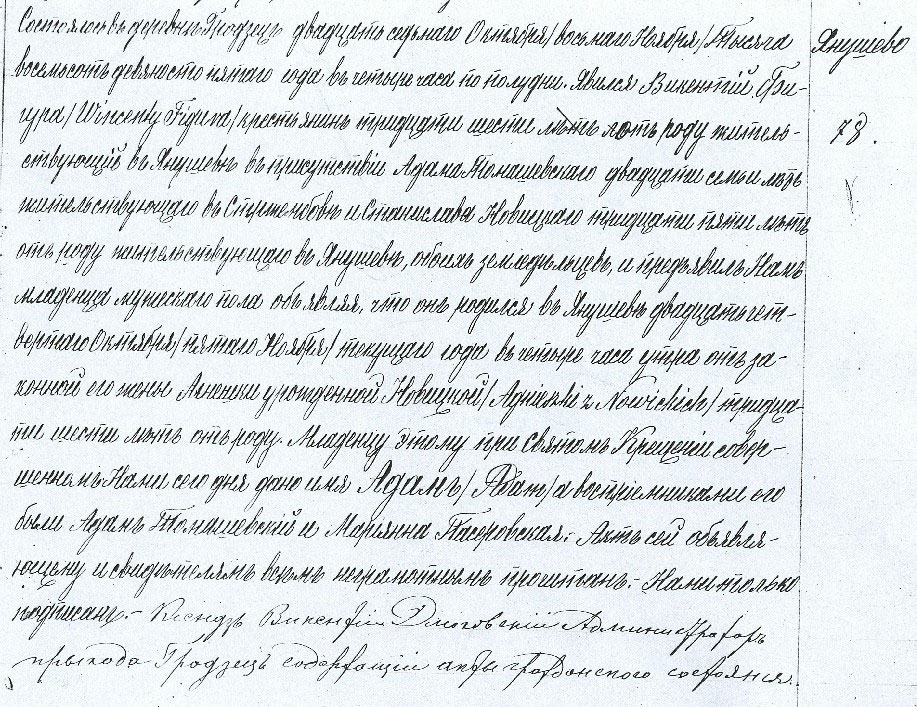 Состоялось въ деревни Гродзецъ двадцать седьмаго Октября/восьмаго Ноября/Тысяча
Янушево
восемьсотъ девяносто пятаго года въ четыре часа по полудни. Явился Викентій Фи-
гура/Wincenty Figura/крестьянинъ тридцати шести лѣтъ отъ роду житель-
78.
ствующій въ Янушевѣ въ присутствіи Адама Томашевскаго двадцати семи лѣтъ
жительствующаго въ и Станислава Новицкаго тридцати пяти лѣтъ
отъ роду жительствующаго въ Янушевѣ, обоихъ земледѣльцевъ, и предъявилъ Намъ
младенца мужескаго пола объявляя, что онъ родился въ Янушевѣ двадцать чет-
вертаго Октября/пятаго Ноября/текущаго года въ четыре часа утра отъ за-
конной его жены Агнешки урожденной Новицкой/Agnieszki z Nowickich/тридца-
ти шести лѣтъ отъ роду. Младенцу этому при Святомъ Крещеніи совер-
шенномъ Нами сего дня дано имя Адамъ/Adam/а воспріемниками его
были Адамъ Томашевскій и Марянна. Актъ сей объявля-
ющему и свидѣтелямъ всѣмъ неграмотнымъ прочитанъ. - Нами только
подписанъ. - Ксендзъ Викентій Администраторъ
прихода Гродзецъ содержащій акты гражданскаго состоянія.